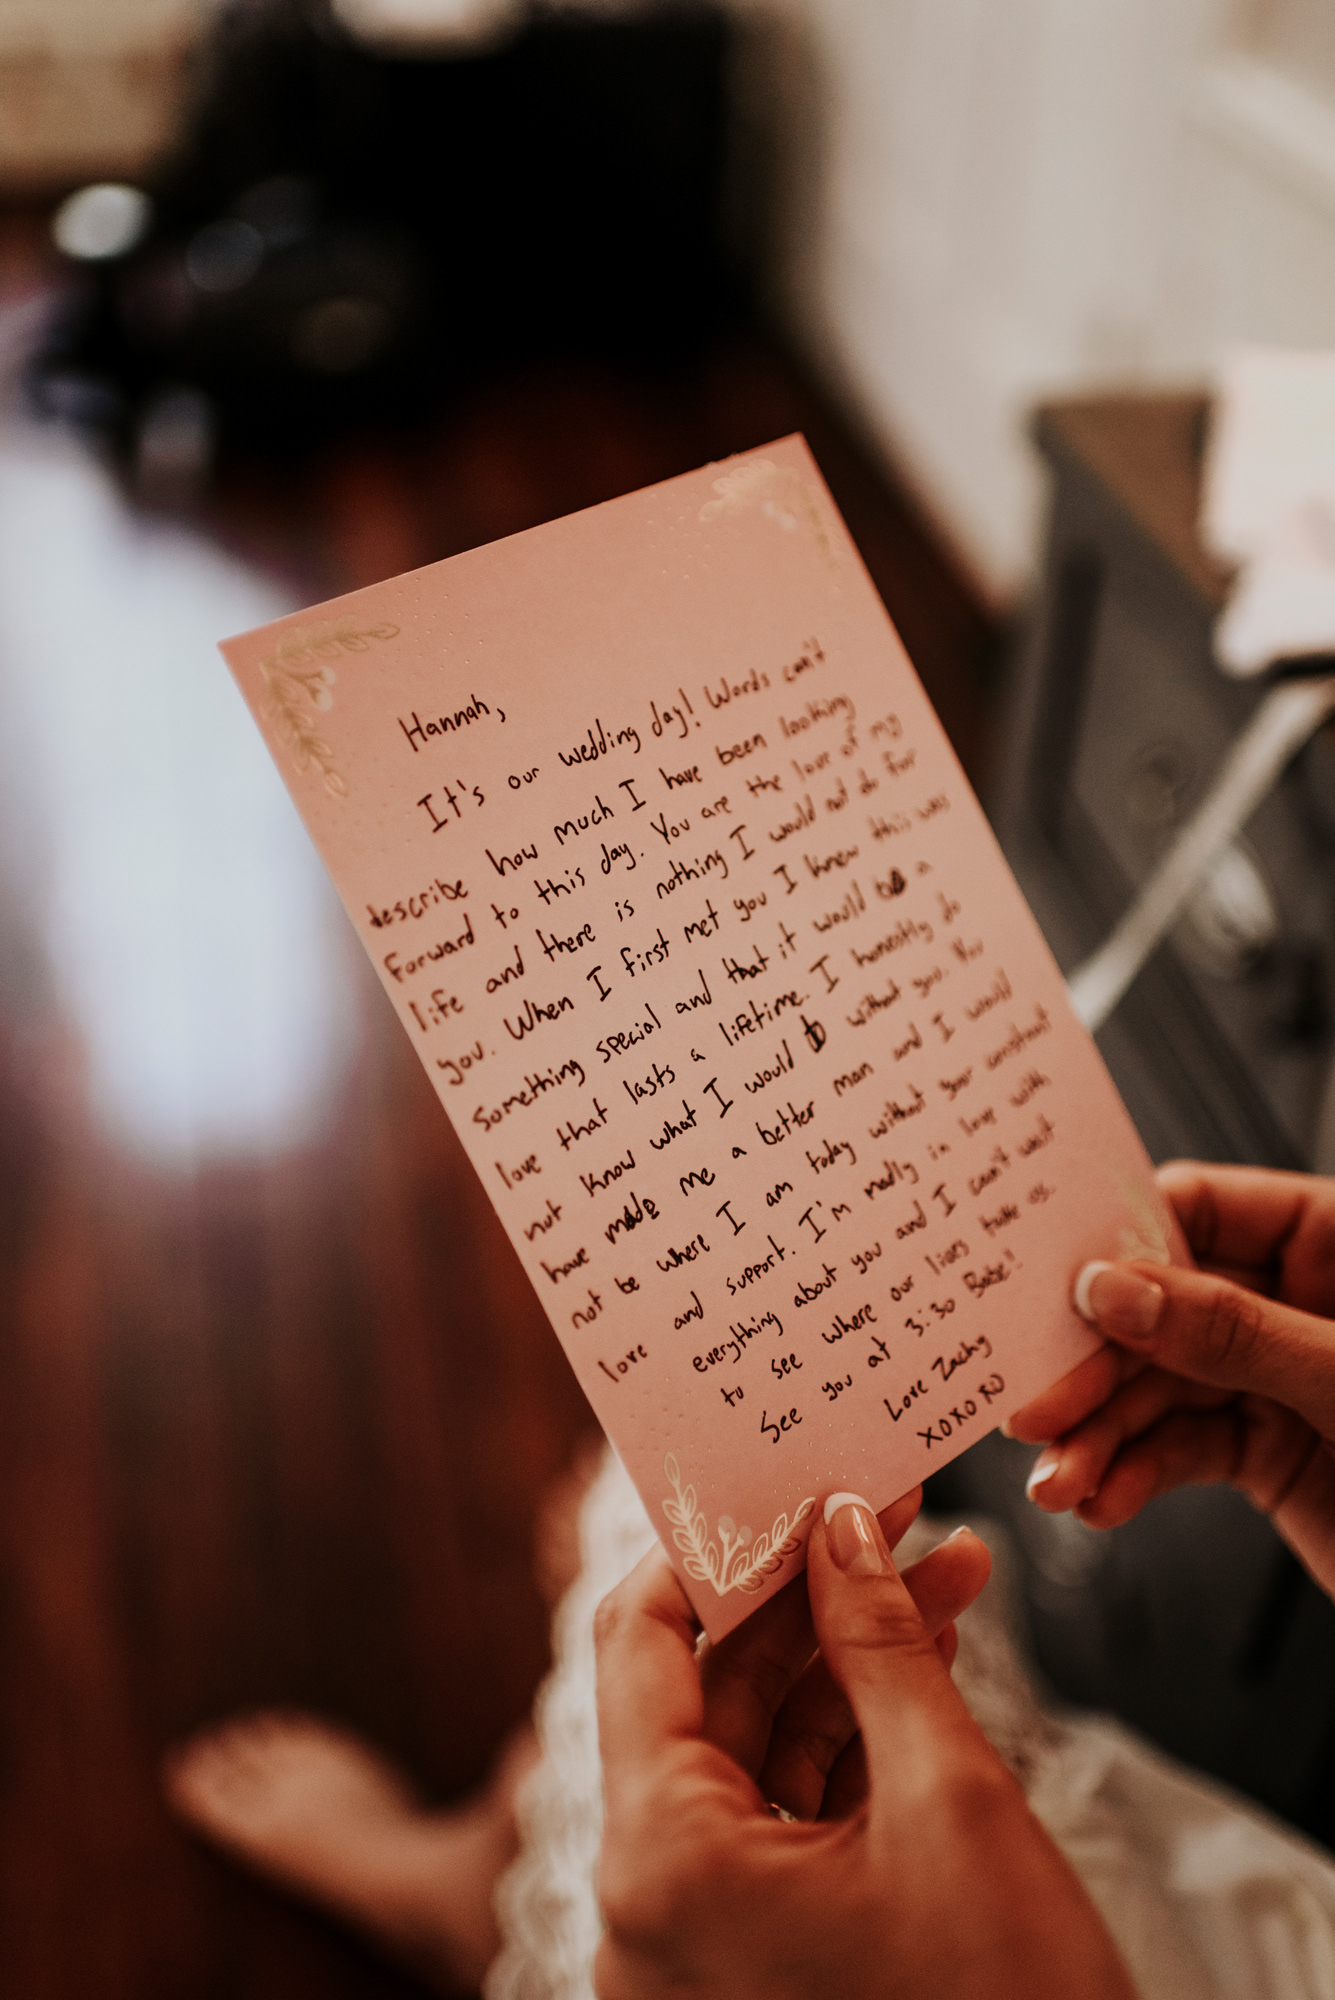 Hannah,
It's our wedding day! Words can't
describe how much I have been looking
forward to this day. You are the love of my
life and there is nothing I would not do for
you. When I first met you I knew this was
something special and that it would be a
love that lasts a lifetime. I honestly do
not know what I would without you. You
have made me a better man and I would
not be where I am today without your constant
love and support. I'm madly in love with
everything about you and I can't wait
to see where our lives take us.
See you at 3:30 Babe!!
Love Zachy
XOXOXO